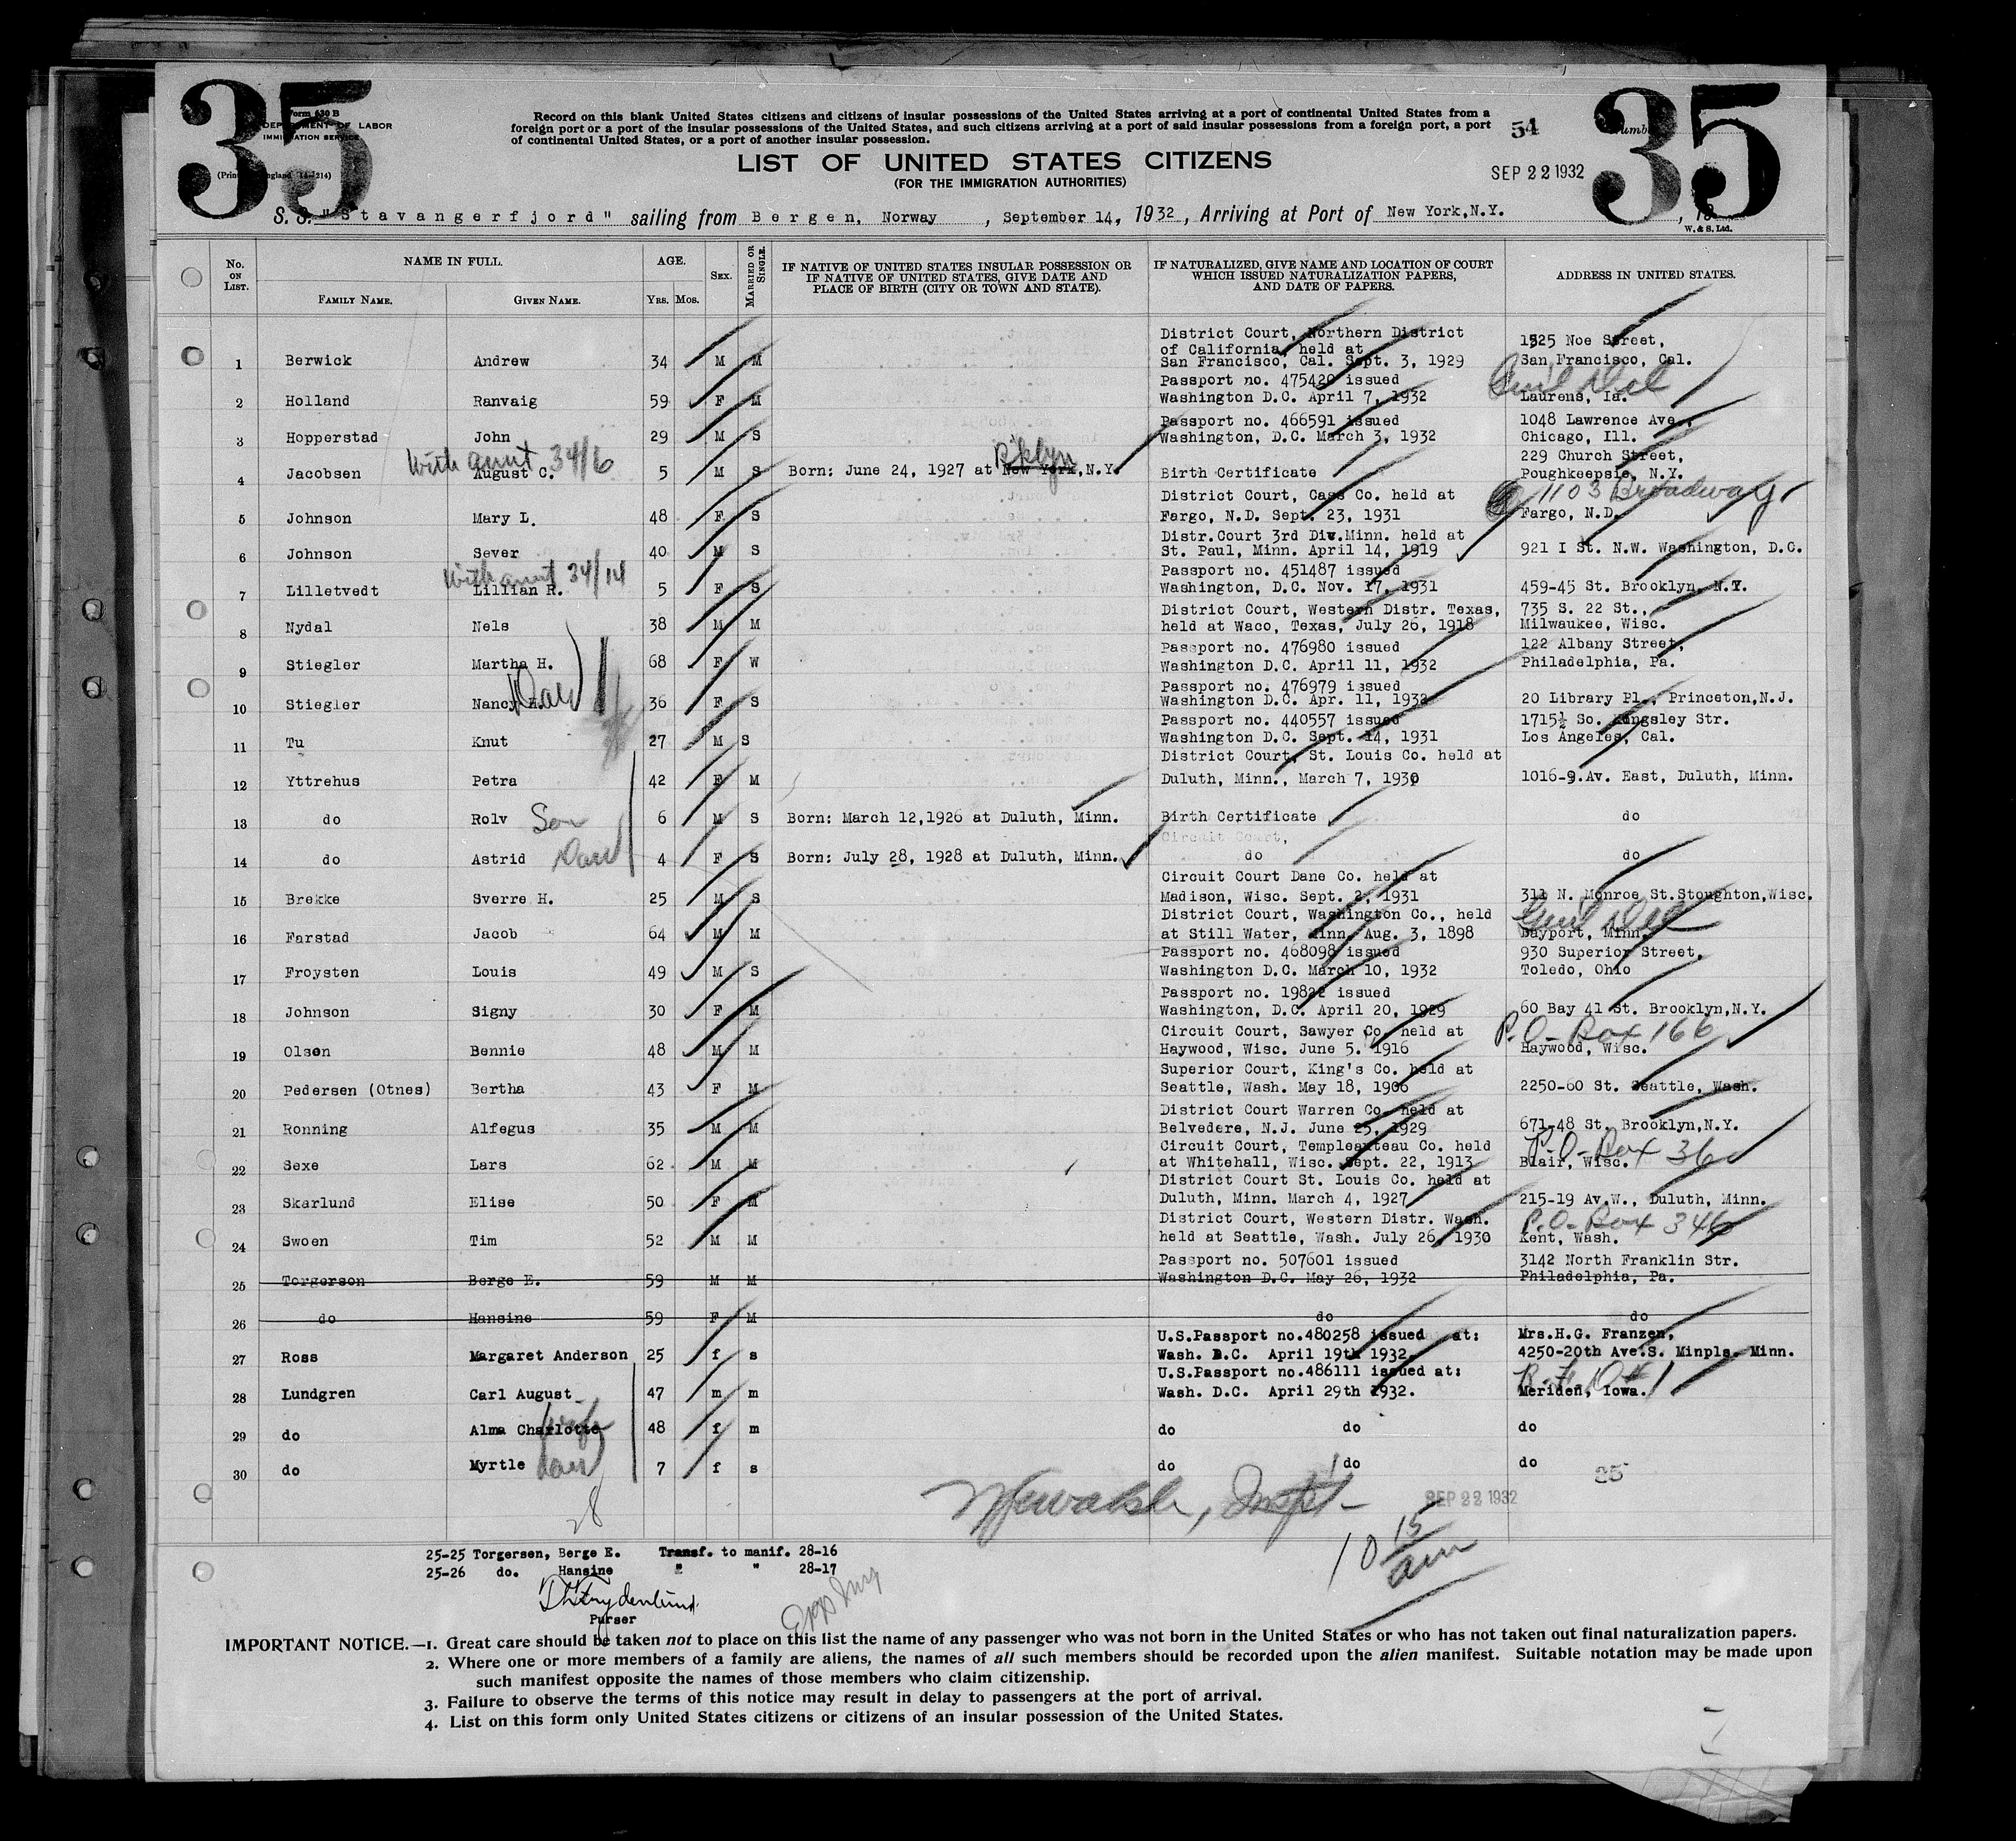 35
35
Form 630 B
DEPARTMENT OF LABOR
IMMIGRATION SERVICE
Record on this blank United States citizens and citizens of insular possessions of the United States arriving at a port of continental United States from a
foreign port or a port of the insular possessions of the United States, and such citizens arriving at a port of said insular possessions from a foreign port, a port
of continental United States, or a port of another insular possession.
54
LIST OF UNITED STATES CITIZENS
(FOR THE IMMIGRATION AUTHORITIES)
SEP 22 1932
S. S. "Stavangerfjord" sailing from Bergen, Norway, September 14, 1932, Arriving at Port of New York, N.Y., 19
W. & S. Ltd.
No. ON LIST. NAME IN FULL. AGE. SEX. MARRIED OR SINGLE. IF NATIVE OF UNITED STATES INSULAR POSSESSION OR IF NATIVE OF UNITED STATES, GIVE DATE AND PLACE OF BIRTH (CITY OR TOWN AND STATE). IF NATURALIZED, GIVE NAME AND LOCATION OF COURT WHICH ISSUED NATURALIZATION PAPERS, AND DATE OF PAPERS. ADDRESS IN UNITED STATES.
FAMILY NAME. GIVEN NAME. YRS. MOS.
District Court, Northern District
of California, held at 1525 Noe Street,
1 Berwick Andrew 34 M M San Francisco, Cal. Sept. 3, 1929 San Francisco, Cal.
Passport no. 475420 issued
2 Holland Ranvaig 59 F M Washington D.C. April 7, 1932 Laurens, Ia.
Passport no. 466591 issued 1048 Lawrence Ave.,
3 Hopperstad John 29 M S Washington, D.C. March 3, 1932 Chicago, Ill.
With aunt 34/6 Bklyn 229 Church Street,
4 Jacobsen August C. 5 M S Born: June 24, 1927 at New York, N.Y. Birth Certificate Poughkeepsie, N.Y.
District Court, Cass Co. held at 1103 Broadway
5 Johnson Mary L. 48 F S Fargo, N.D. Sept. 23, 1931 Fargo, N.D.
Distr.Court 3rd Div.Minn. held at
6 Johnson Sever 40 M S St. Paul, Minn. April 14, 1919 921 I St. N.W. Washington, D.C.
With aunt 34/14 Passport no. 451487 issued
7 Lilletvedt Lillian R. 5 F S Washington, D.C. Nov. 17, 1931 459-45 St. Brooklyn, N.Y.
District Court, Western Distr. Texas, 735 S. 22 St.,
8 Nydal Nels 38 M M held at Waco, Texas, July 26, 1918 Milwaukee, Wisc.
Passport no. 476980 issued 122 Albany Street,
9 Stiegler Martha H. 68 F W Washington D.C. April 11, 1932 Philadelphia, Pa.
Dau Passport no. 476979 issued
10 Stiegler Nancy H. 36 F S Washington D.C. Apr. 11, 1932 20 Library Pl., Princeton, N.J.
Passport no. 440557 issued 1715½ So. Kingsley Str.
11 Tu Knut 27 M S Washington D.C. Sept. 14, 1931 Los Angeles, Cal.
District Court, St. Louis Co. held at
12 Yttrehus Petra 42 F M Duluth, Minn., March 7, 1930 1016-9.Av. East, Duluth, Minn.
13 do Rolv Son 6 M S Born: March 12, 1926 at Duluth, Minn. Birth Certificate do
Circuit Court,
14 do Astrid Dau 4 F S Born: July 28, 1928 at Duluth, Minn. do do
Circuit Court Dane Co. held at
15 Brekke Sverre H. 25 M S Madison, Wisc. Sept. 2, 1931 311 N. Monroe St. Stoughton, Wisc.
District Court, Washington Co., held Genl Del
16 Farstad Jacob 64 M M at Still Water, Minn. Aug. 3, 1898 Bayport, Minn.
Passport no. 468098 issued 930 Superior Street,
17 Froysten Louis 49 M S Washington D.C. March 10, 1932 Toledo, Ohio
Passport no. 19822 issued
18 Johnson Signy 30 F M Washington, D.C. April 20, 1929 60 Bay 41 St. Brooklyn, N.Y.
Circuit Court, Sawyer Co. held at P.O-Box 166
19 Olson Bennie 48 M M Haywood, Wisc. June 5. 1916 Haywood, Wisc.
Superior Court, King's Co. held at
20 Pedersen (Otnes) Bertha 43 F M Seattle, Wash. May 18, 1906 2250-60 St. Seattle, Wash.
District Court Warren Co. held at
21 Ronning Alfegus 35 M M Belvedere, N.J. June 25, 1929 671-48 St. Brooklyn, N.Y.
Circuit Court, Templeauteau Co. held P-O-Box 36
22 Sexe Lars 62 M M at Whitehall, Wisc. Sept. 22, 1913 Blair, Wisc.
District Court St. Louis Co. held at
23 Skarlund Elise 50 F M Duluth, Minn. March 4, 1927 215-19 Av.W., Duluth, Minn.
District Court, Western Distr. Wash. P.O-Box 346
24 Swoen Tim 52 M M held at Seattle, Wash. July 26, 1930 Kent, Wash.
Passport no. 507601 issued 3142 North Franklin Str.
25 Torgerson Berge E. 59 M M Washington D.C. May 26, 1932 Philadelphia, Pa.
26 do Hansine 59 F M do do
U.S.Passport no.480258 issued at: Mrs.H.G. Franzen,
27 Ross Margaret Anderson 25 f s Wash. D.C. April 19th 1932. 4250-20th Ave.S. Minpls. Minn.
U.S.Passport no.486111 issued at: R.F.D #1
28 Lundgren Carl August 47 m m Wash. D.C. April 29th 1932. Meriden, Iowa.
29 do Alma Charlotte wife 48 f m do do do
30 do Myrtle dau 7 f s do do do
35
28 SEP 22 1932
Insp-
10 15 am
25-25 Torgersen, Berge E. Transf. to manif. 28-16
25-26 do. Hansine " " 28-17
Purser
IMPORTANT NOTICE.—1. Great care should be taken not to place on this list the name of any passenger who was not born in the United States or who has not taken out final naturalization papers.
2. Where one or more members of a family are aliens, the names of all such members should be recorded upon the alien manifest. Suitable notation may be made upon
such manifest opposite the names of those members who claim citizenship.
3. Failure to observe the terms of this notice may result in delay to passengers at the port of arrival.
4. List on this form only United States citizens or citizens of an insular possession of the United States.